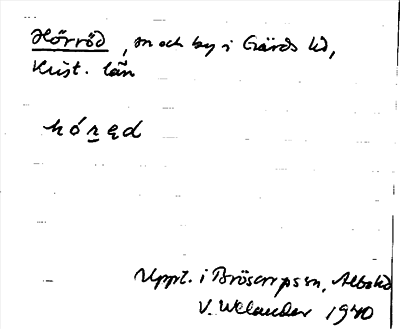 Hörröd, sn och by i Gärds hd,
Krist. län
hórąd
Uppt. i Brösarps sn, Albo hd
V. Welander 1940